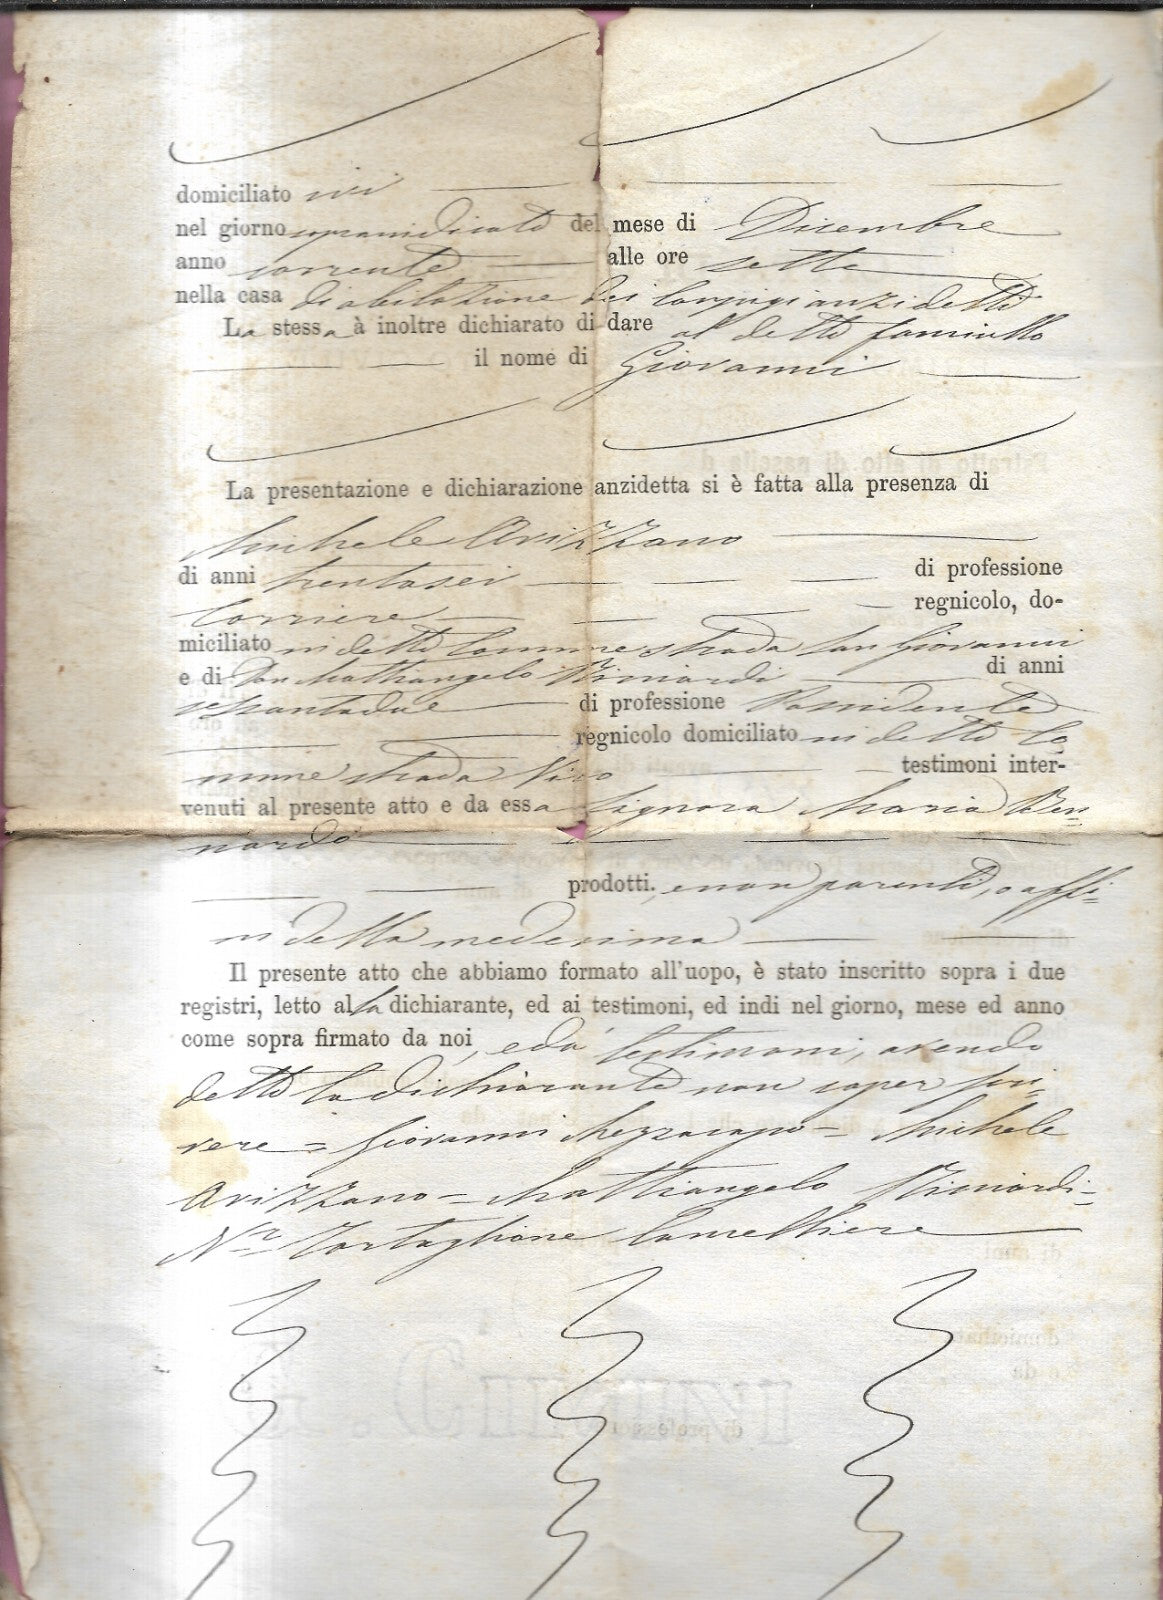 domiciliato ivi
nel giorno sopraindicato del mese di Dicembre
anno corrente alle ore sette
nella casa di abitazione dei coniugi anzidetti
La stessa à inoltre dichiarato di dare al detto fanciullo
il nome di Giovanni
La presentazione e dichiarazione anzidetta si è fatta alla presenza di
Michele Avizzano
di anni trentasei di professione
Corriere regnicolo, do-
miciliato in detto Comune strada San Giovanni
e di Don Mattiangelo di anni
sessantadue di professione Possidente
regnicolo domiciliato in detto Co
mune strada Vico testimoni inter-
venuti al presente atto e da essa Signora Maria Ber=
nardo
prodotti, e non parenti, o affi=
ni della medesima
Il presente atto che abbiamo formato all'uopo, è stato inscritto sopra i due
registri, letto alla dichiarante, ed ai testimoni, ed indi nel giorno, mese ed anno
come sopra firmato da noi, e da' testimoni, avendo
detto la dichiarante non saper scri=
vere = Giovanni Mezzacapo = Michele
Avizzano = Mattiangelo
Tartaglione Cancelliere